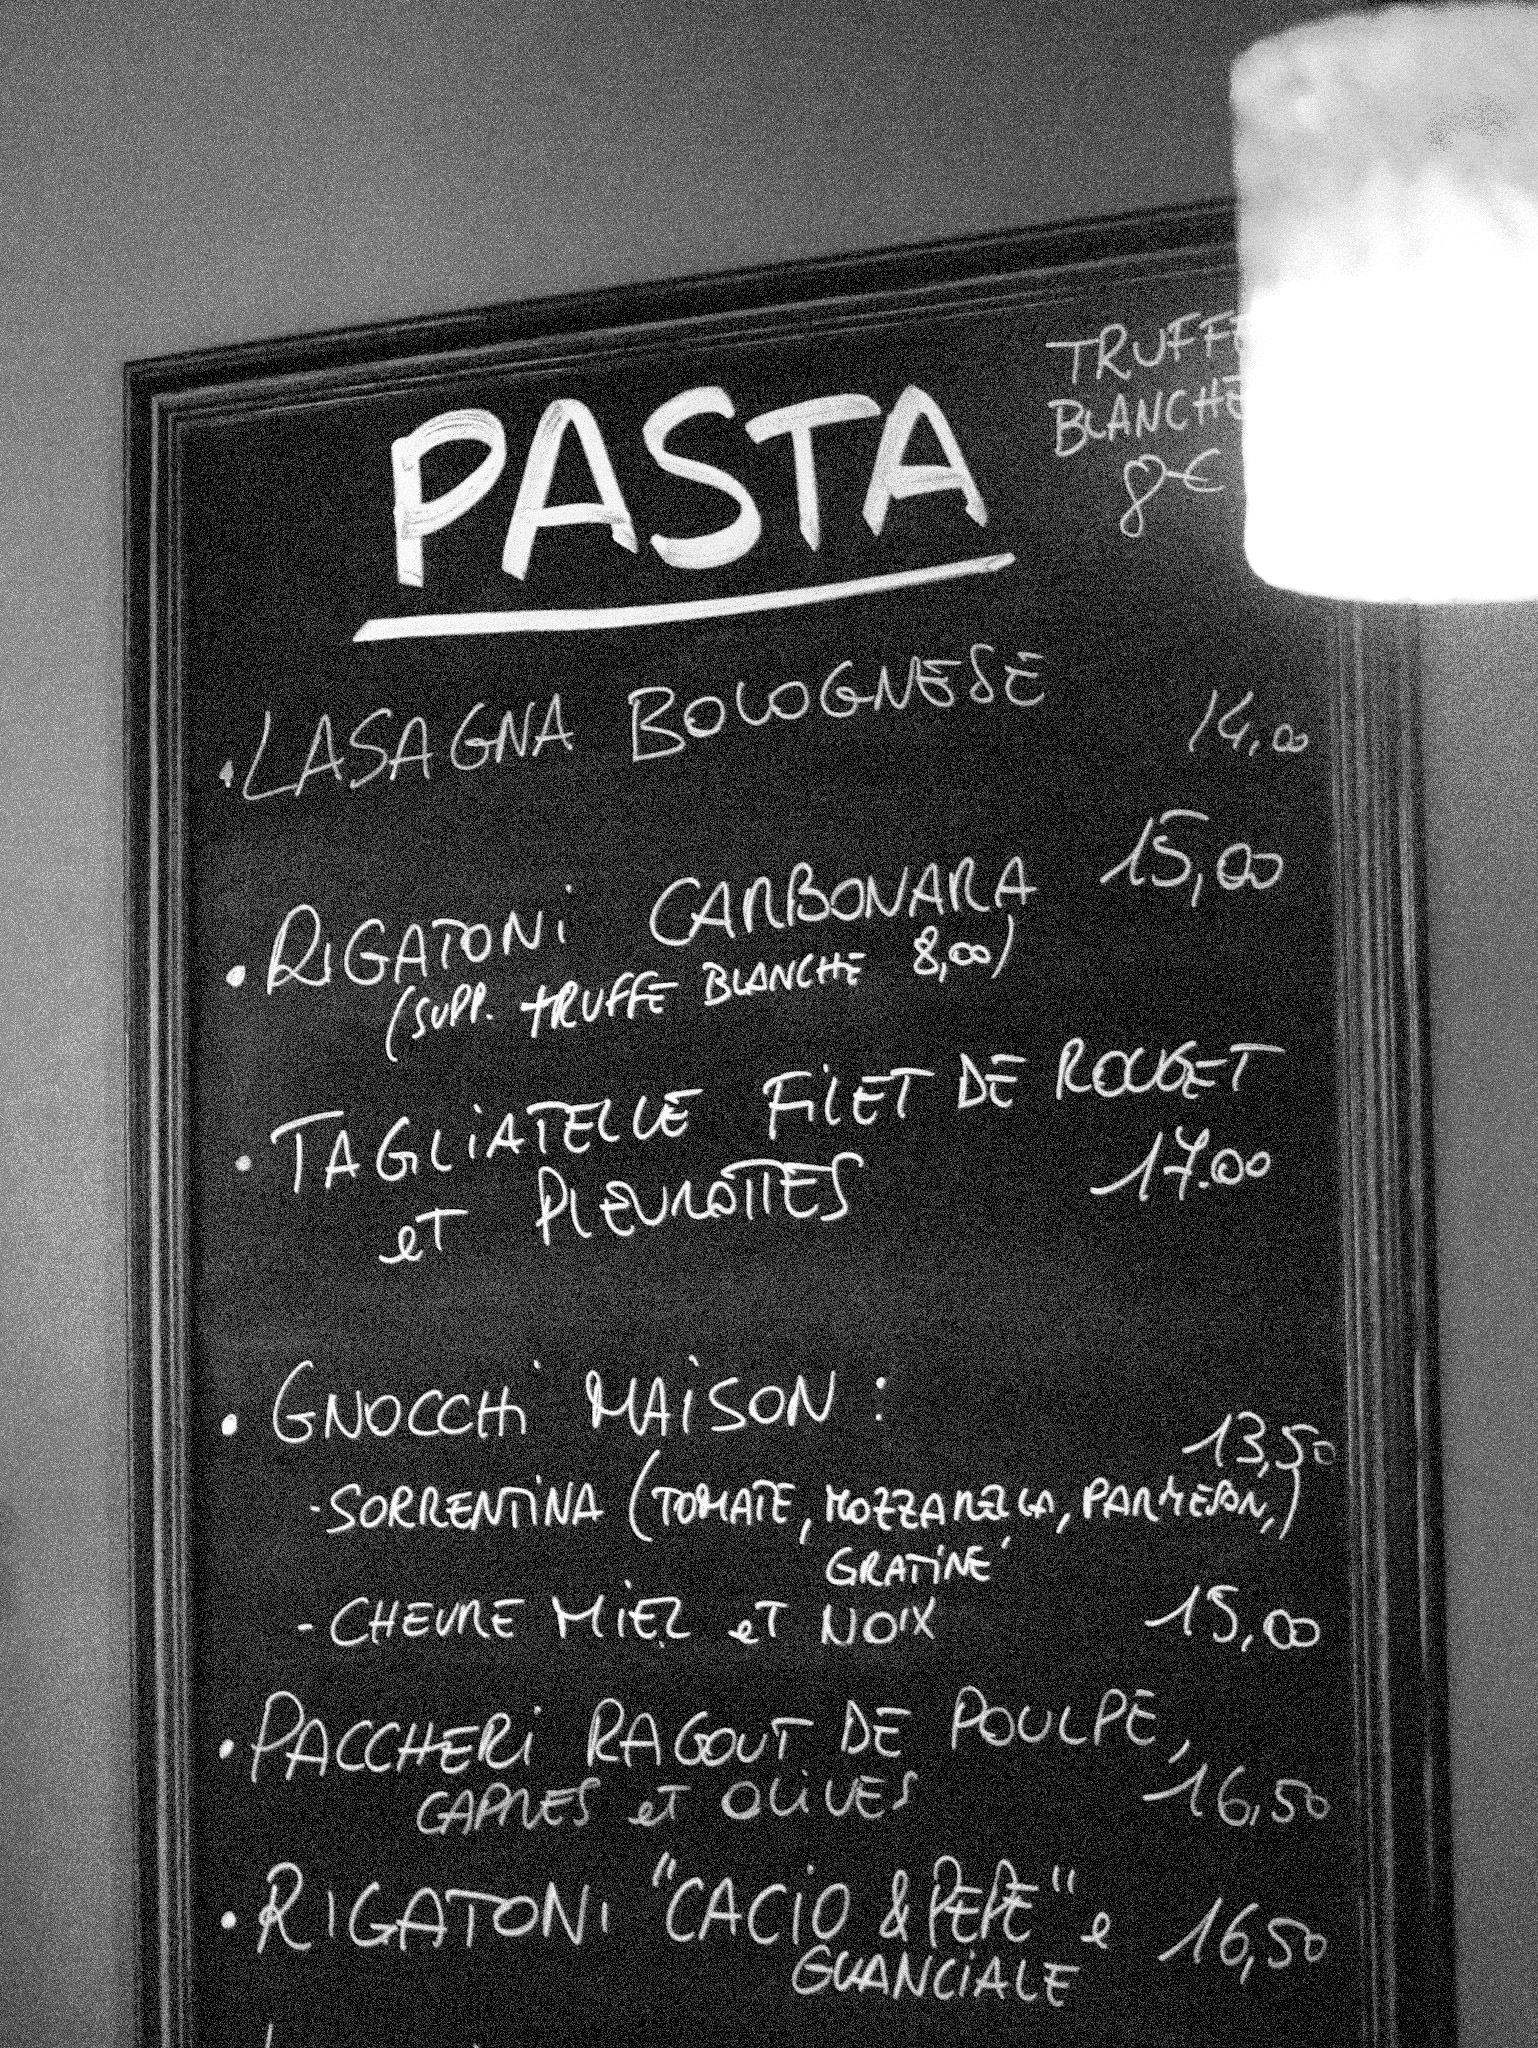 TRUFFE
BLANCHE
8€
PASTA
• LASAGNA BOLOGNESE 14,00
• RIGATONI CARBONARA 15,00
(SUPP. TRUFFE BLANCHE 8,00)
• TAGLIATELLE FILET DE ROUGET
et PLEUROTTES 17.00
• GNOCCHI MAISON :
13,50
- SORRENTINA (TOMATE, MOZZARELLA, PARMESAN,)
GRATINÉ
- CHEVRE MIEL et NOIX 15,00
• PACCHERI RAGOUT DE POULPE,
CAPRES et OLIVES 16,50
• RIGATONI "CACIO & PEPE" e 16,50
GUANCIALE